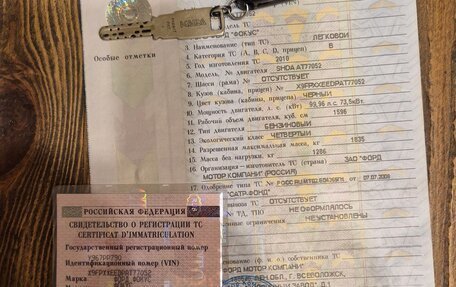 Особые отметки
"ФОКУС"
3. Наименование (тип ТС) ЛЕГКОВОЙ
4. Категория ТС (А, В, С, D, прицеп) В
5. Год изготовления ТС 2010
6. Модель, № двигателя SHDA AT77052
7. Шасси (рама) № ОТСУТСТВУЕТ
8. Кузов (кабина, прицеп) № X9FPXXEEDPAT77052
9. Цвет кузова (кабины, прицепа) ЧЕРНЫЙ
10. Мощность двигателя, л.с. (кВт) 99,96 л.с. 73,5кВт
11. Рабочий объем двигателя, куб. см 1596
12. Тип двигателя БЕНЗИНОВЫЙ
13. Экологический класс ЧЕТВЕРТЫЙ
14. Разрешенная максимальная масса, кг 1835
15. Масса без нагрузки, кг 1286
16. Организация-изготовитель ТС (страна) ЗАО "ФОРД
МОТОР КОМПАНИ" (РОССИЯ)
17. Одобрение типа ТС №
"САТР-ФОНД"
ОТСУТСТВУЕТ
ТД, ТПО НЕ ОФОРМЛЯЛОСЬ
НЕ УСТАНОВЛЕНЫ
собственника ТС
ФОРД МОТОР КОМПАНИ"
Г. ВСЕВОЛОЖСК,
РОССИЙСКАЯ ФЕДЕРАЦИЯ
СВИДЕТЕЛЬСТВО О РЕГИСТРАЦИИ ТС
CERTIFICAT D'IMMATRICULATION
Государственный регистрационный номер
У967РР790
Идентификационный номер (VIN)
X9FPXXEEDPAT77052
Марка ФОРД ФОКУС